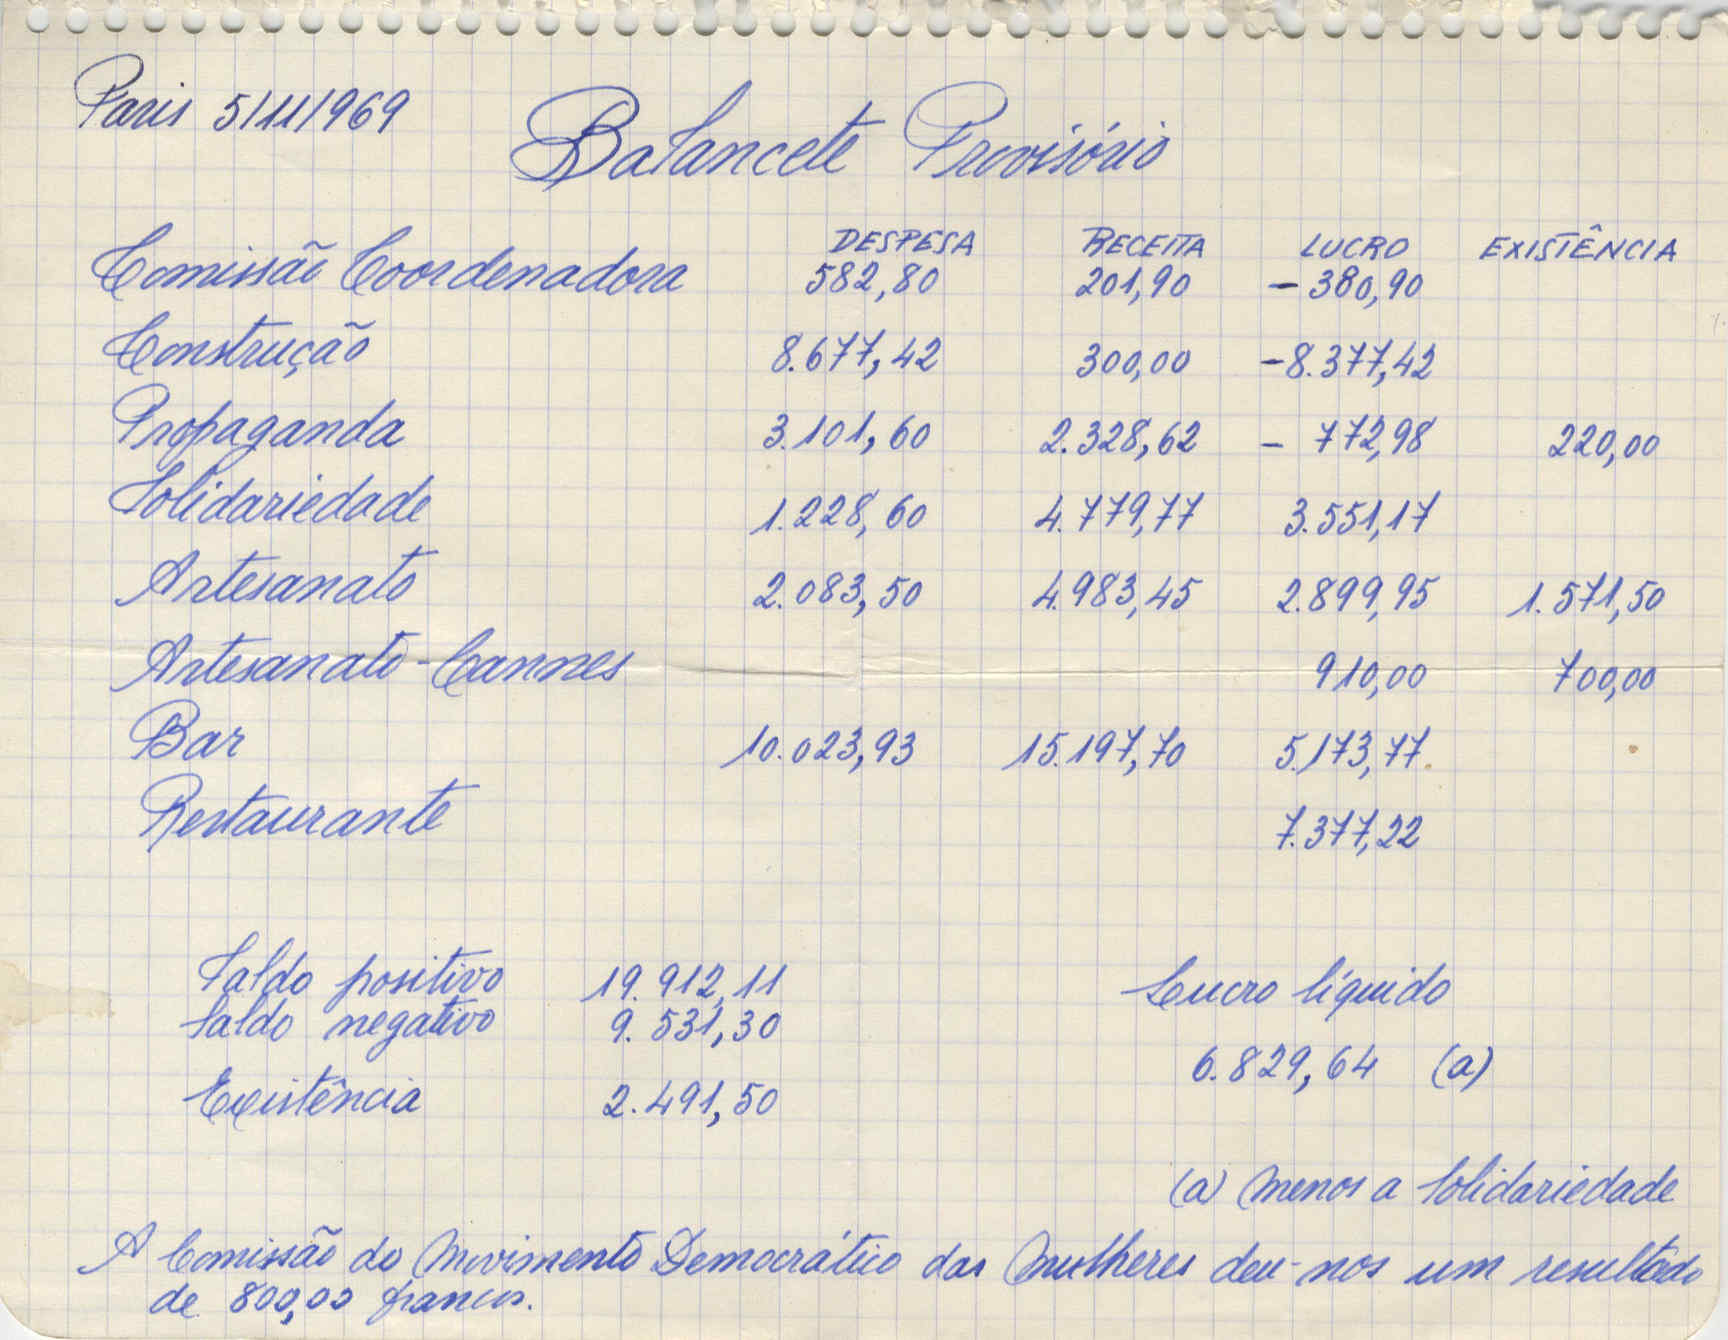 Paris 5/11/1969
Balancete Provisório
DESPESA RECEITA LUCRO EXISTÊNCIA
Comissão Coordenadora 582,80 201,90 - 380,90
Construção 8.677,42 300,00 -8.377,42
Propaganda 3.101,60 2.328,62 - 772,98 220,00
Solidariedade 1.228,60 4.779,77 3.551,17
Artesanato 2.083,50 4.983,45 2.899,95 1.571,50
Artesanato-Cannes 910,00 700,00
Bar 10.023,93 15.197,70 5.173,77
Restaurante 7.377,22
Saldo positivo 19.912,11 Lucro líquido
Saldo negativo 9.531,30
6.829,64 (a)
Existência 2.491,50
(a) Menos a Solidariedade
A Comissão do Movimento Democrático das Mulheres deu-nos um resultado
de 800,00 francos.